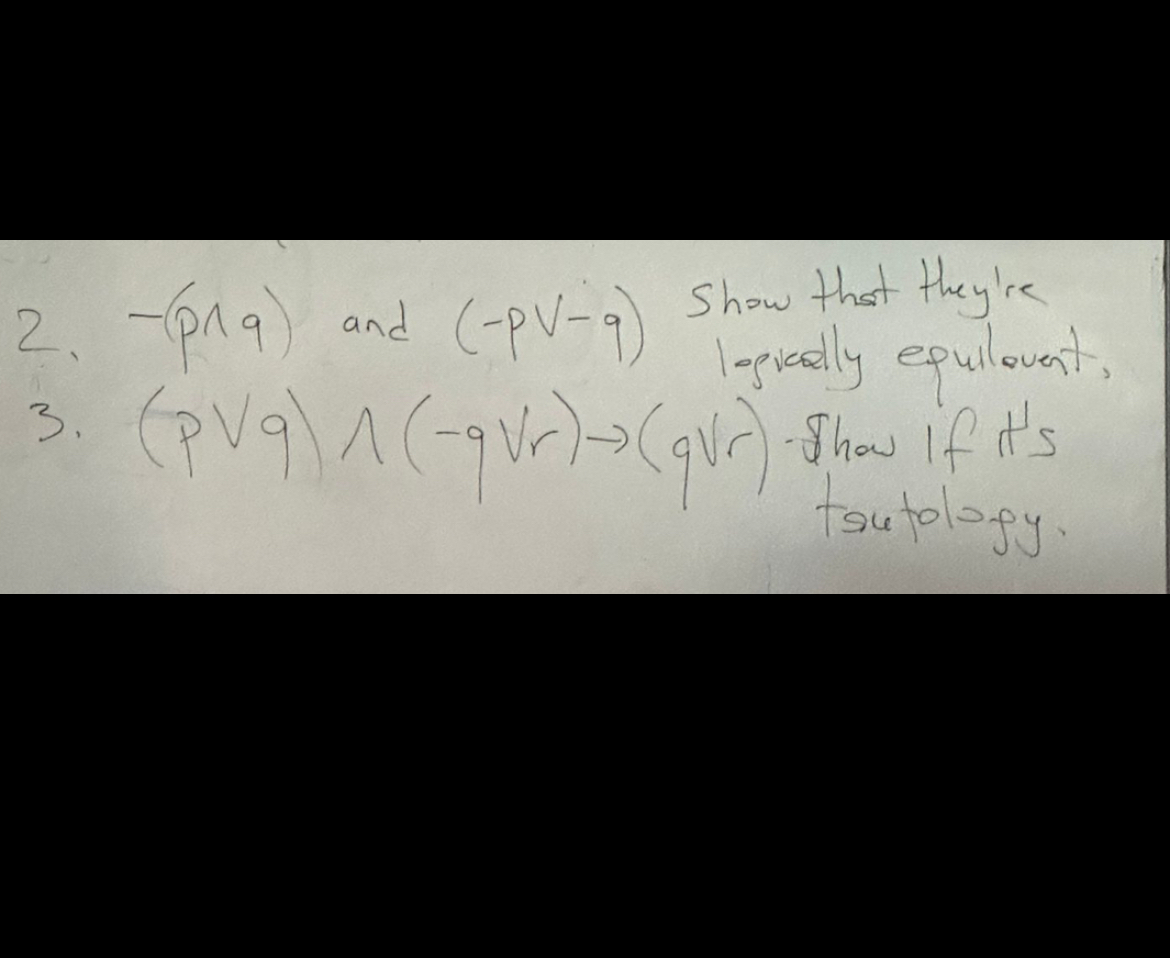 2. -(p∧q) and (-p∨-q) Show that they're
logically equilovent.
3. (p∨q)∧(-q∨r)→(q∨r) - Show if it's
tautology.